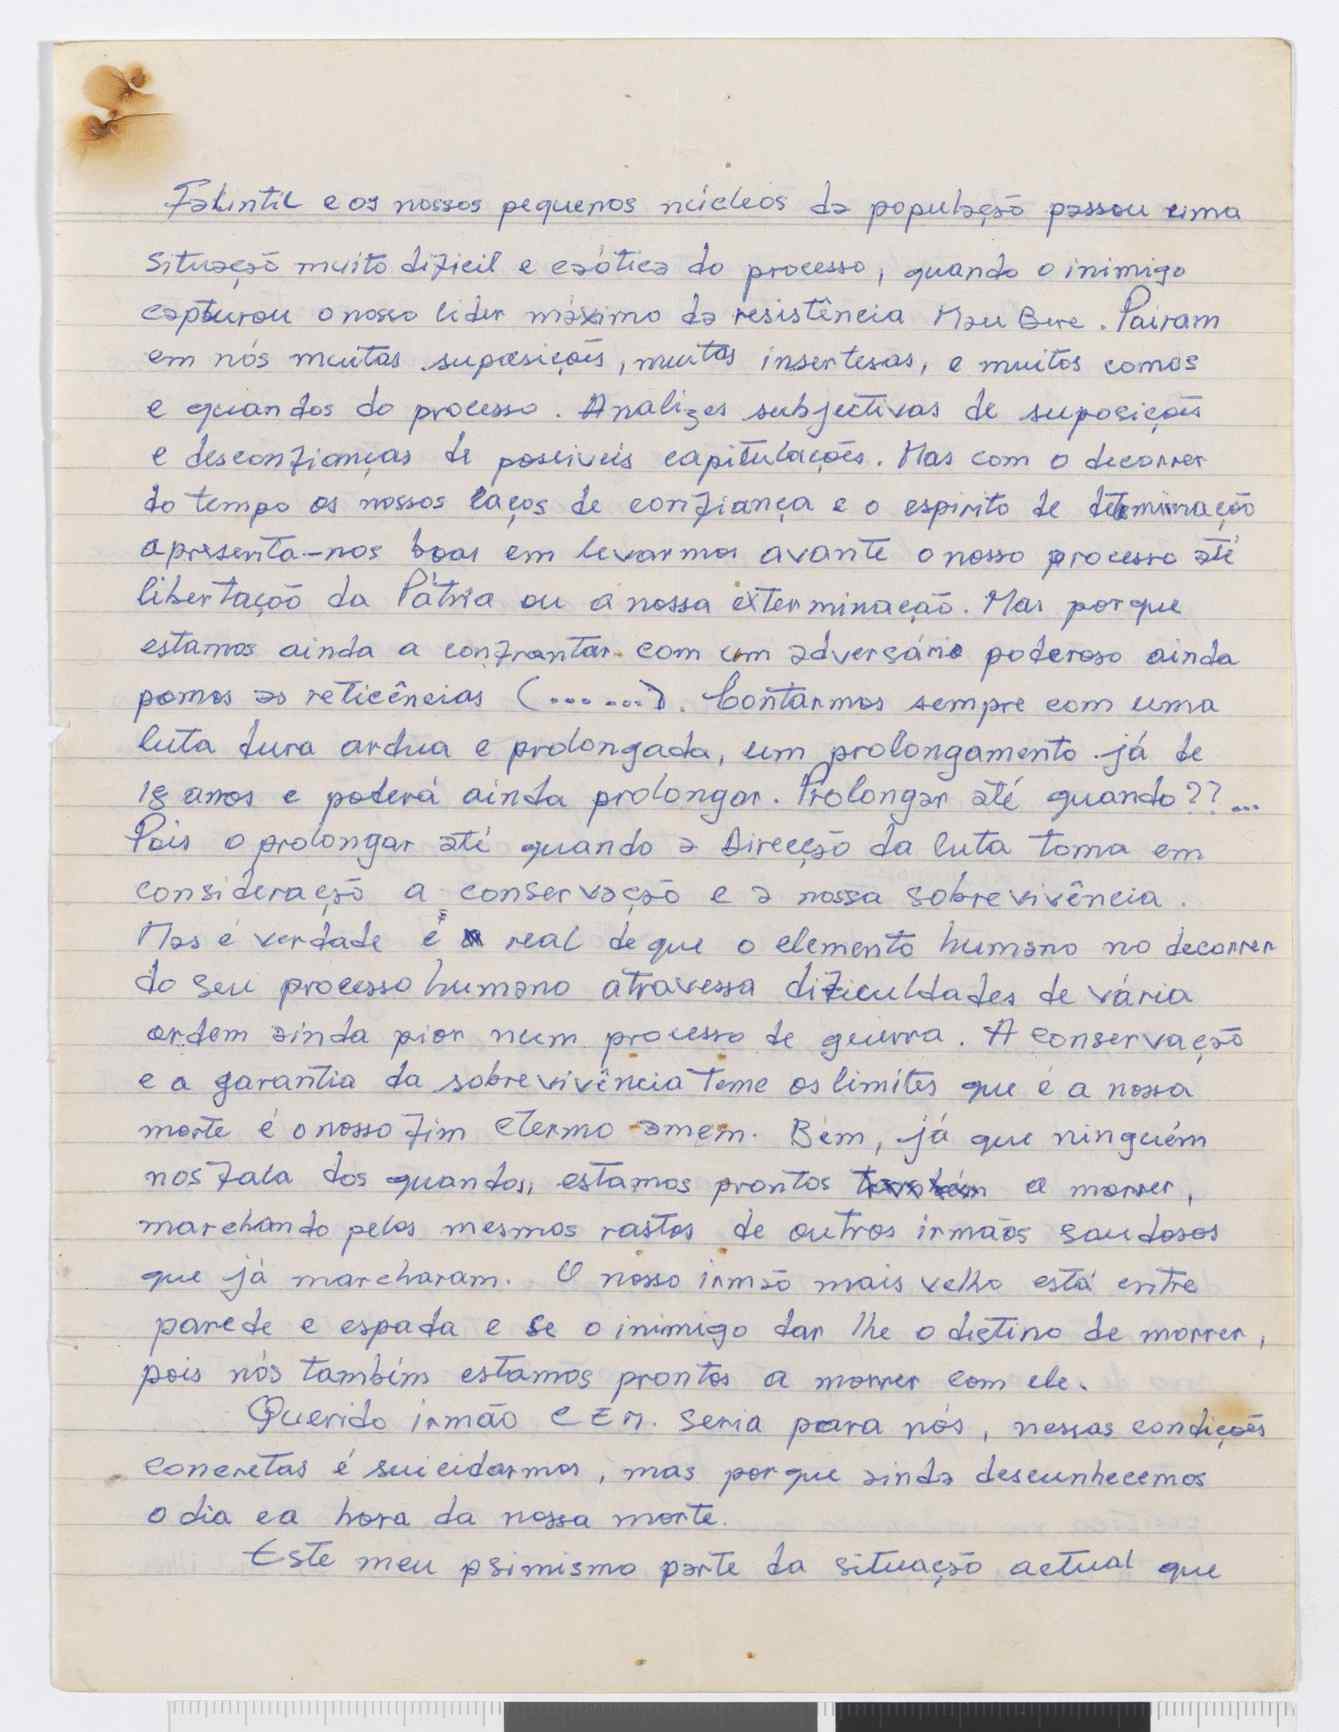 Falintil e os nossos pequenos núcleos da população passou uma
situação muito dificil e caótica do processo, quando o inimigo
capturou o nosso lider máximo da resistência Mau Bere. Pairam
em nós muitas suposições, muitas insertesas, e muitos comos
e quandos do processo. Analizes subjectivas de suposições
e desconfianças de possiveis capitulações. Mas com o decorrer
do tempo os nossos laços de confiança e o espirito de determinação
apresenta-nos boas em levarmos avante o nosso processo até
libertação da Pátria ou a nossa exterminação. Mas porque
estamos ainda a confrontar com um adversário poderoso ainda
pomos as reticências (... ...). Contarmos sempre com uma
luta dura ardua e prolongada, um prolongamento já de
18 anos e poderá ainda prolongar. Prolongar até quando??...
Pois o prolongar até quando a Direcção da luta toma em
consideração a conservação e a nossa sobrevivência.
Mas é verdade é real de que o elemento humano no decorrer
do seu processo humano atravessa dificuldades de vária
ordem ainda pior num processo de guerra. A conservação
e a garantia da sobrevivência teme os limites que é a nossa
morte é o nosso fim etermo amem. Bem, já que ninguém
nos fala dos quandos, estamos prontos a morrer,
marchando pelos mesmos rastos de outros irmãos saudosos
que já marcharam. O nosso irmão mais velho está entre
parede e espada e se o inimigo dar lhe o distino de morrer,
pois nós também estamos prontos a morrer com ele.
Querido irmão C E M. seria para nós, nessas condições
concretas é suicidarmos, mas porque ainda descunhecemos
o dia e a hora da nossa morte.
Este meu psimismo parte da situação actual que